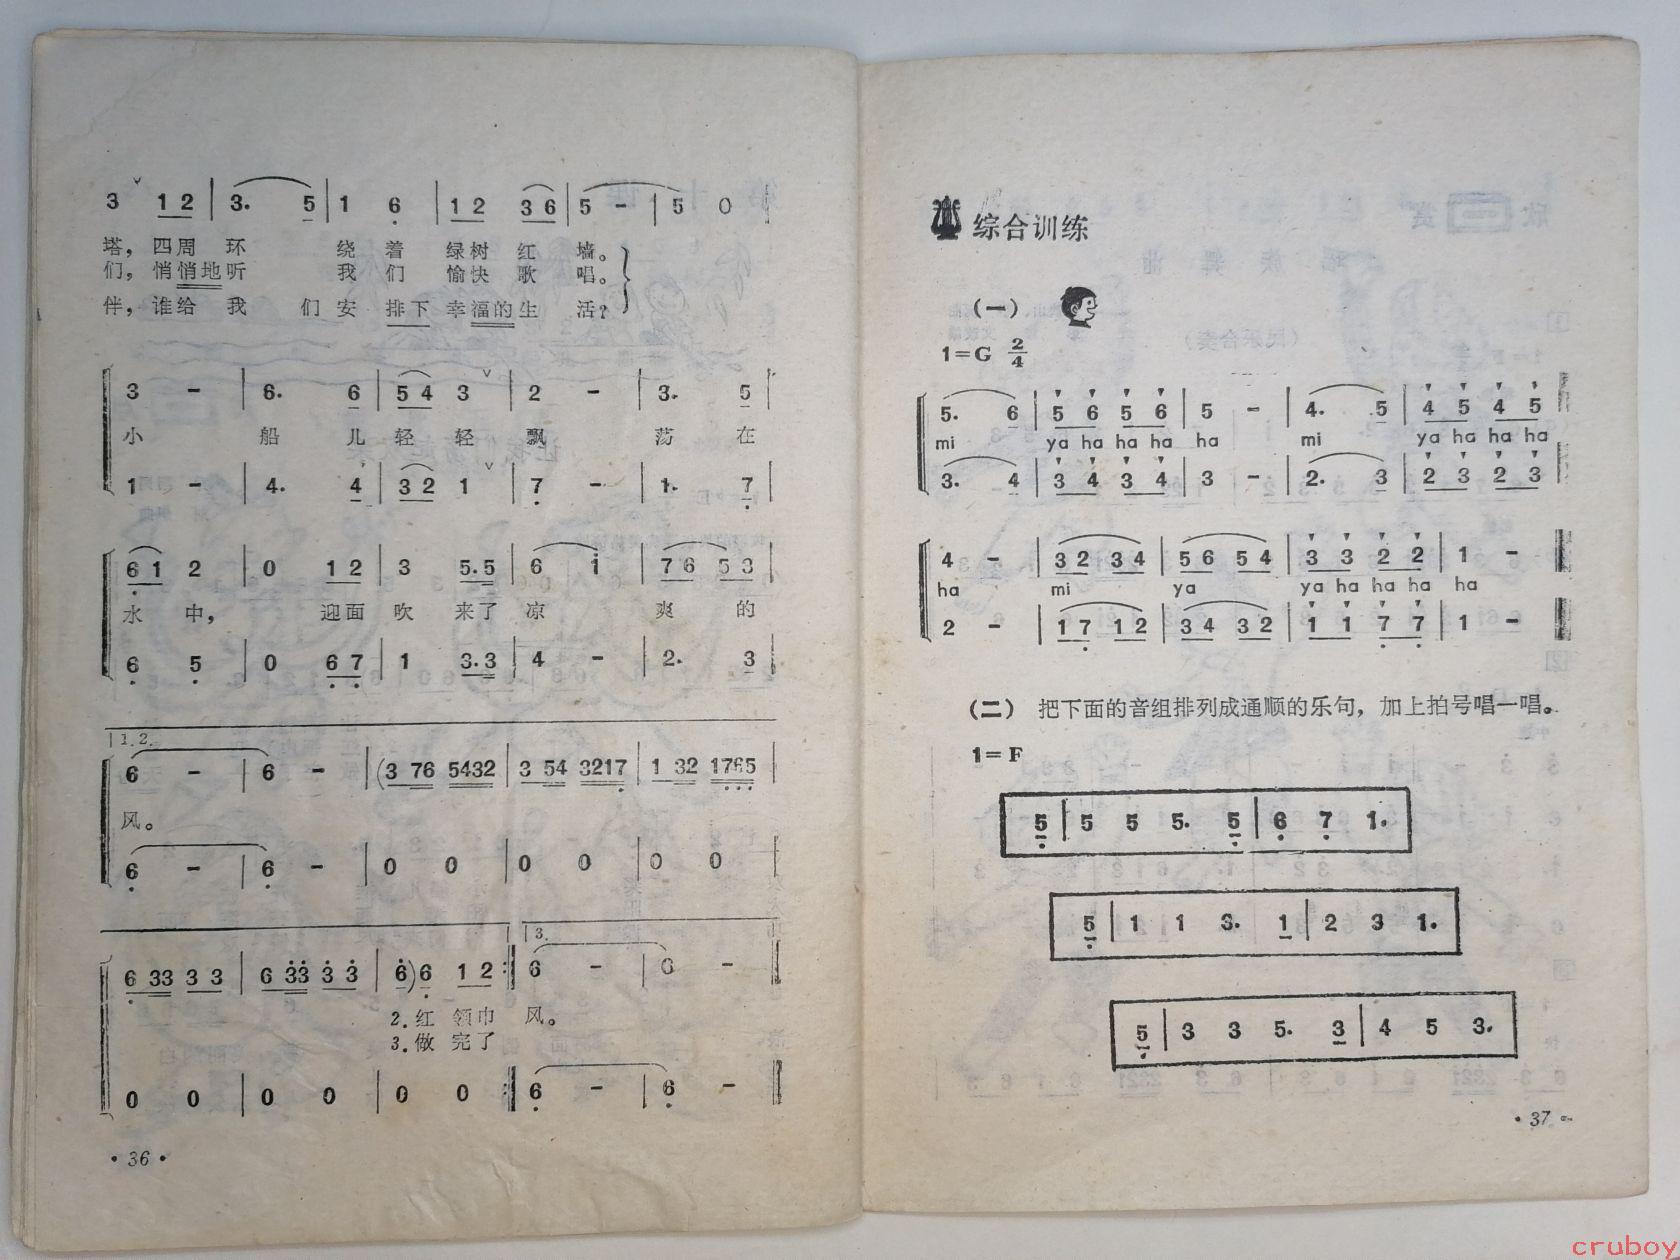 3 1 2 | 3. 5 | 1 6 | 1 2 3 6 | 5 - | 5 0 |
塔，四周 环 绕 着 绿树 红 墙。
们，悄悄地听 我 们 愉快 歌 唱。
伴，谁给 我 们 安 排下 幸福的生 活？
3 - | 6. 6 | 5 4 3 | 2 - | 3. 5 |
小 船 儿 轻 轻 飘 荡 在
1 - | 4. 4 | 3 2 1 | 7 - | 1. 7 |
6 1 2 | 0 1 2 | 3 5.5 | 6 i | 7 6 5 3 |
水 中， 迎面 吹 来了 凉 爽 的
6 5 | 0 6 7 | 1 3.3 | 4 - | 2. 3 |
1.2.
6 - | 6 - | (3 76 5432 | 3 54 3217 | 1 32 1765 |
风。
6 - | 6 - | 0 0 | 0 0 | 0 0 |
3.
6 33 3 3 | 6 33 3 3 | 6)6 1 2 :| 6 - | 6 - |
2.红 领巾 风。
3.做 完了
0 0 | 0 0 | 0 0 :| 6 - | 6 - |
• 36 •
综合训练
（一）
1=G 2/4
5. 6 | 5 6 5 6 | 5 - | 4. 5 | 4 5 4 5 |
mi ya ha ha ha ha mi ya ha ha ha
3. 4 | 3 4 3 4 | 3 - | 2. 3 | 2 3 2 3 |
4 - | 3 2 3 4 | 5 6 5 4 | 3 3 2 2 | 1 - |
ha mi ya ya ha ha ha ha
2 - | 1 7 1 2 | 3 4 3 2 | 1 1 7 7 | 1 - |
（二） 把下面的音组排列成通顺的乐句，加上拍号唱一唱。
1=F
5 | 5 5 5. 5 | 6 7 1.
5 | 1 1 3. 1 | 2 3 1.
5 | 3 3 5. 3 | 4 5 3.
• 37 •
cruboy